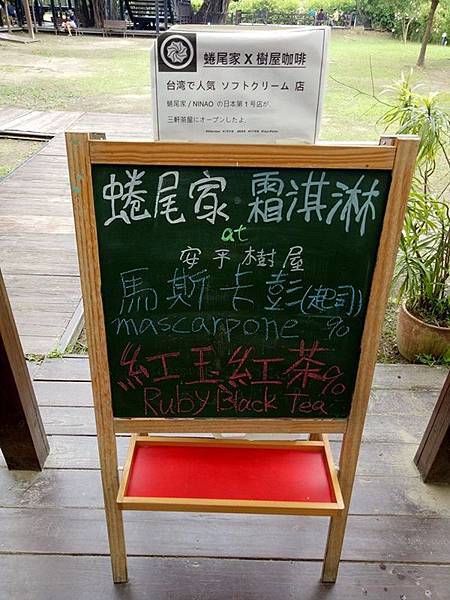 蜷尾家 X 樹屋咖啡
台湾で人気 ソフトクリーム 店
蜷尾家 / NINAO の日本第1号店が、
三軒茶屋にオープンしたよ.
蜷尾家 霜淇淋
at
安平樹屋
馬斯卡彭(起司)
mascarpone 90
紅玉紅茶90
Ruby Black Tea